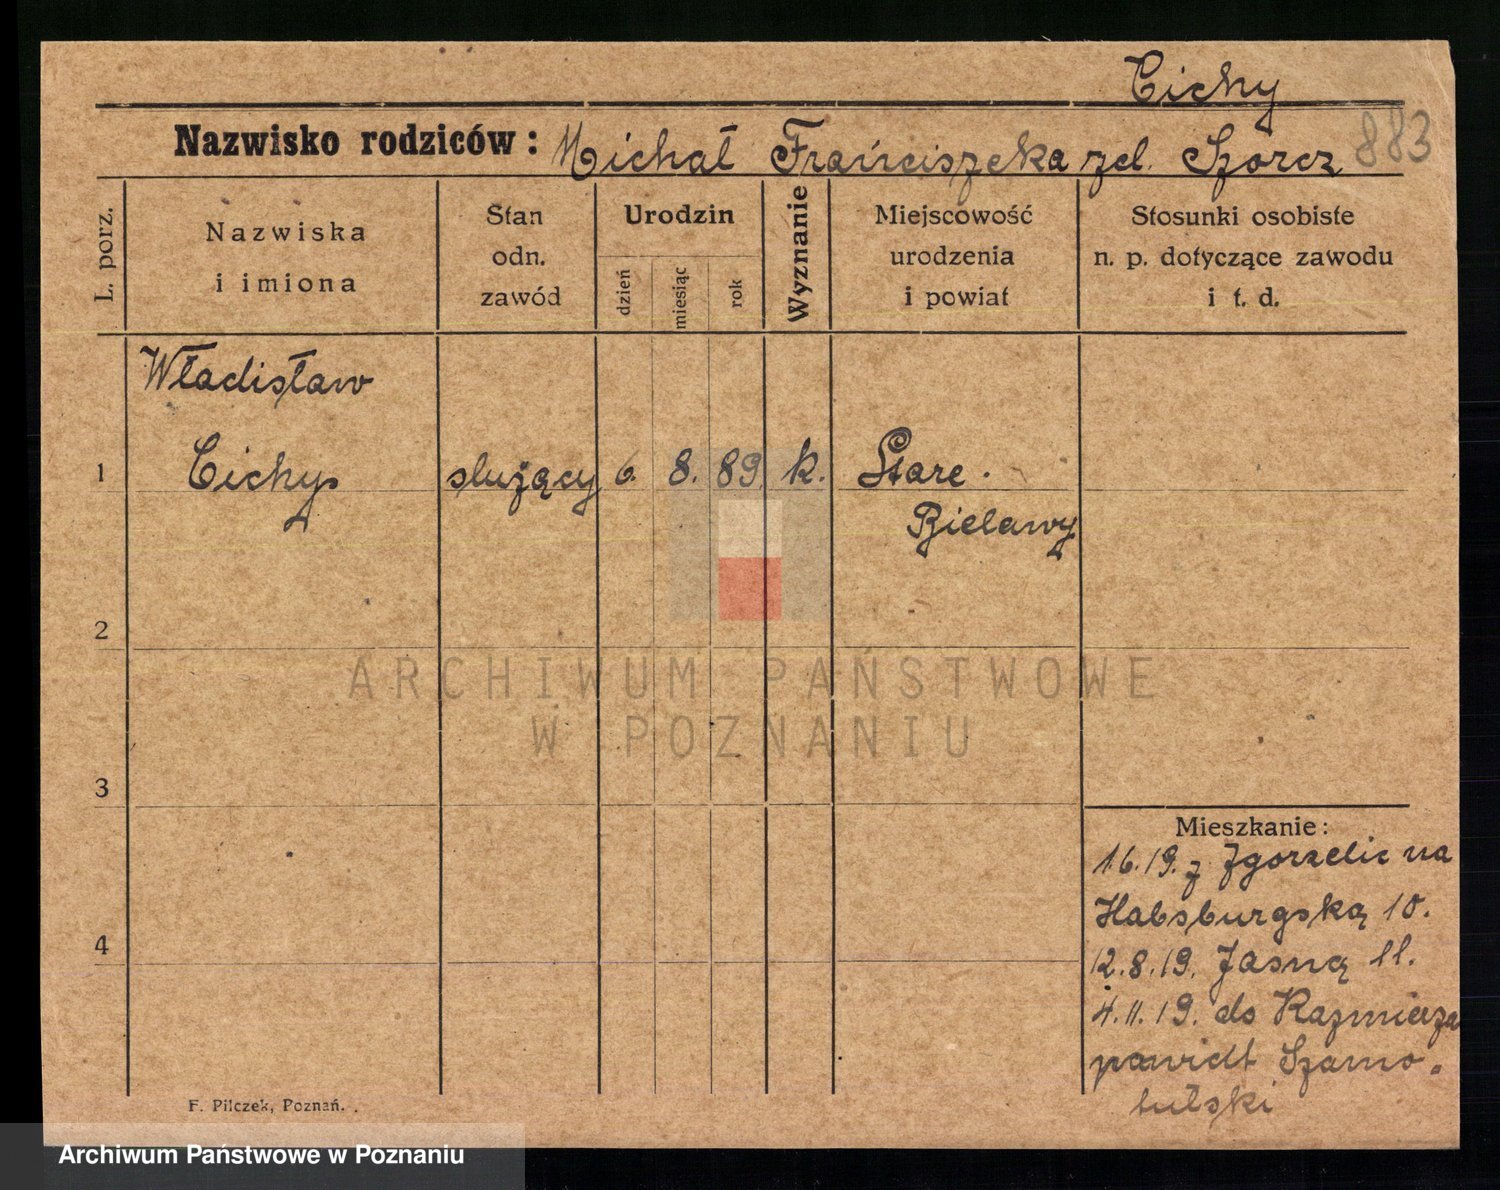 Cichy
Nazwisko rodziców: Michał Franciszka zd. Szorcz 883
L. porz.
Nazwiska
i imiona
Stan
odn.
zawód
Urodzin
dzień
miesiąc
rok
Wyznanie
Miejscowość
urodzenia
i powiat
Stosunki osobiste
n. p. dotyczące zawodu
i t. d.
Władisław
1 Cichy służący 6. 8. 89. k. Stare
Bielawy
2
3
4
ARCHIWUM PAŃSTWOWE
W POZNANIU
Mieszkanie:
1.6.19. z Zgorzelic na
Habsburgską 10.
12.8.19. Jasną 11.
4.11.19. do Kazmierza
powidt Szamo-
tulski
F. Pilczek, Poznań.
Archiwum Państwowe w Poznaniu